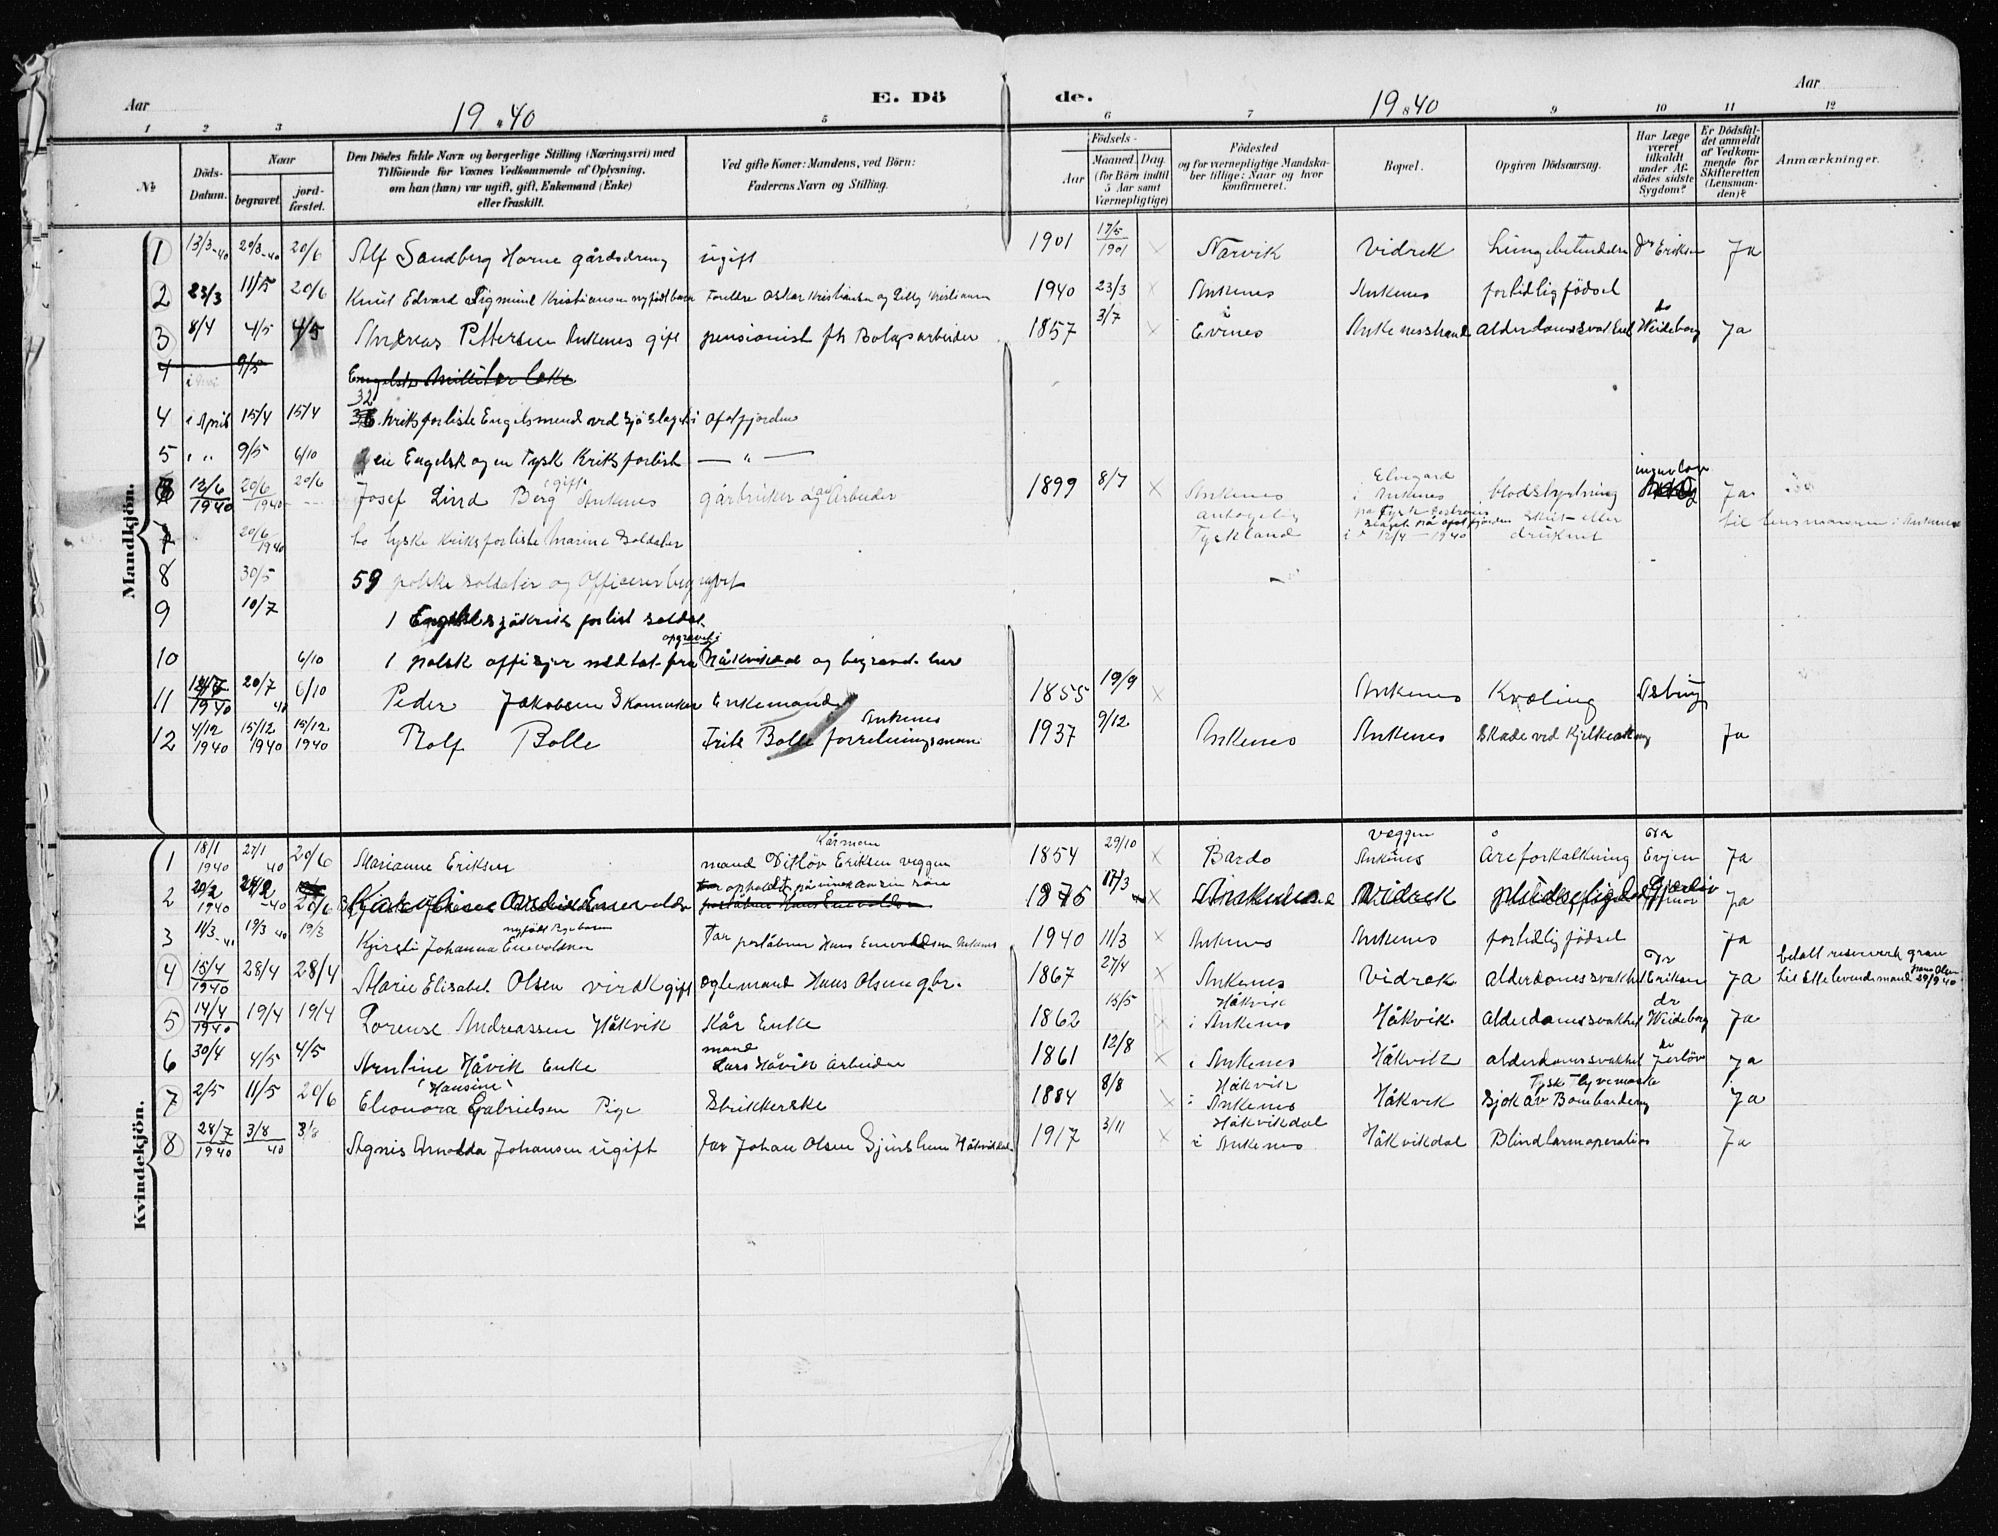 Aar 19 40 E. Dö de. 19 40 Aar
1 2 3 5 6 7 8 9 10 11 12
№ Döds-Datum. Naar begravet. jordfæstet. Den Dödes fulde Navn og borgerlige Stilling (Næringsvei) med Tilföiende for Voxnes Vedkommende af Oplysning, om han (hun) var ugift, gift, Enkemand (Enke) eller fraskilt. Ved gifte Koner: Mandens, ved Börn: Faderens Navn og Stilling. Födsels- Aar Maaned. Dag. (for Börn indtil 5 Aar samt Værnepligtige) Födested og for værnepligtige Mandskaber tillige: Naar og hvor konfirmeret. Bopæl. Opgiven Dödsaarsag. Har Læge været tilkaldt under Afdödes sidste Sygdom? Er Dödsfaldet anmeldt af Vedkommende for Skifteretten (Lensmanden)? Anmærkninger.
Mandkjön.
1 13/3-40 29/3-40 20/6 Alf Sandberg Horne gårdsdreng ugift 1901 17/5 1901 Narvik Vidrek Lungebetendelse Dr Eriksen Ja
2 23/3 11/5 20/6 Knut Edvard Sigmund Kristiansen nyfödt barn Foreldre Oskar Kristiansen og Kristiansen 1940 23/3 Ankenes Ankenes fortidlig födsel
3 8/4 4/5 4/5 Andreas Pettersen Ankenes gift pensionist fh Bolagsarbeider 1857 3/7 i Evenes Ankenesstrand Alderdomssvakhed Weideborg Ja
4 i 9/5 Engelsk
4 i April 15/4 15/4 32 Kriksforliste Engelsmend ved Sjöslaget i Ofotfjorden
5 " " 9/5 6/10 en Engelsk og en Tysk Kriksforlist — " —
13/6 1940 20/6 1940 20/6 Josef Lind Berg gift Ankenes gårbruker og Arbeider 1899 8/7 Ankenes Elvegard i Ankenes blodstyrtning ingen lege Ja
7 20/6 1940 tyske Kriksforliste Marine Soldater antagelig Tyskland 12/4 - 1940 skut - eller druknet til lensmannen i Ankenes
8 30/5 59 polske soldater og Officerer begravet
9 10/7 1 Engelsk sjökrik forlist soldat
10 6/10 1 polsk offisjer nedtat fra opgravet i Håkvikdal og begravd her
11 1940 20/7 40 6/10 Peder Jakobsen Skomaker Enkemand 1855 19/9 Ankenes Kvæling Ja
12 4/12 1940 15/12 1940 15/12 1940 Rolf Bolle Frik Bolle forretningsman Ankenes 1937 9/12 Ankenes Ankenes Skade ved Kjelkeaking Ja
Kvindekjön.
1 18/1 1940 27/1 40 20/6 Marianne Eriksen mand Ditlöv Eriksen veggen Kårman 1854 29/10 Bardo veggen Ankenes Åreforkalkning Dr Evjen Ja
2 20/2 1940 40 20/6 Karoline Enevoldsen 1875 17/3 Ankenes Vidrek Ja
3 11/3-40 19/3 40 19/3 Kjirsti Johanna Enevoldsen nyfödt Far Hans Enevoldsen Ankenes 1940 11/3 Ankenes Ankenes fortidlig födsel Ja
4 15/4 1940 28/4 28/4 Marie Elisabet Olsen virdk gift egtemand Hans Olsen gbr. 1867 27/4 Ankenes Vidrek Alderdomssvakhet Dr Eriksen Ja betalt reserverk grav til Efterlevende mand Hans Olsen 29/9 40
5 14/4 1940 19/4 19/4 Lorense Andreassen Håkvik Kår Enke 1862 15/5 Håkvik i Ankenes Håkvik Alderdomssvakhet dr Weideborg Ja
6 30/4 4/5 4/5 Arntine Håvik Enke mand Lars Håvik Arbeider 1861 12/8 i Ankenes Håkvik alderdomssvakhet dr Jerlöv Ja
7 2/5 11/5 20/6 Eleonora (Hansine) Gabrielsen Pige Strikkerske 1884 8/8 Håkvik i Ankenes Håkvik Sjok av Tysk Flyvemaske Bombardering Ja
8 28/7 1940 3/8 40 3/8 Agnis Arnolda Johansen ugift far Johan Olsen Håkvikdal 1917 3/11 Håkvikdal i Ankenes Håkvikdal Blindtarmoperation Ja